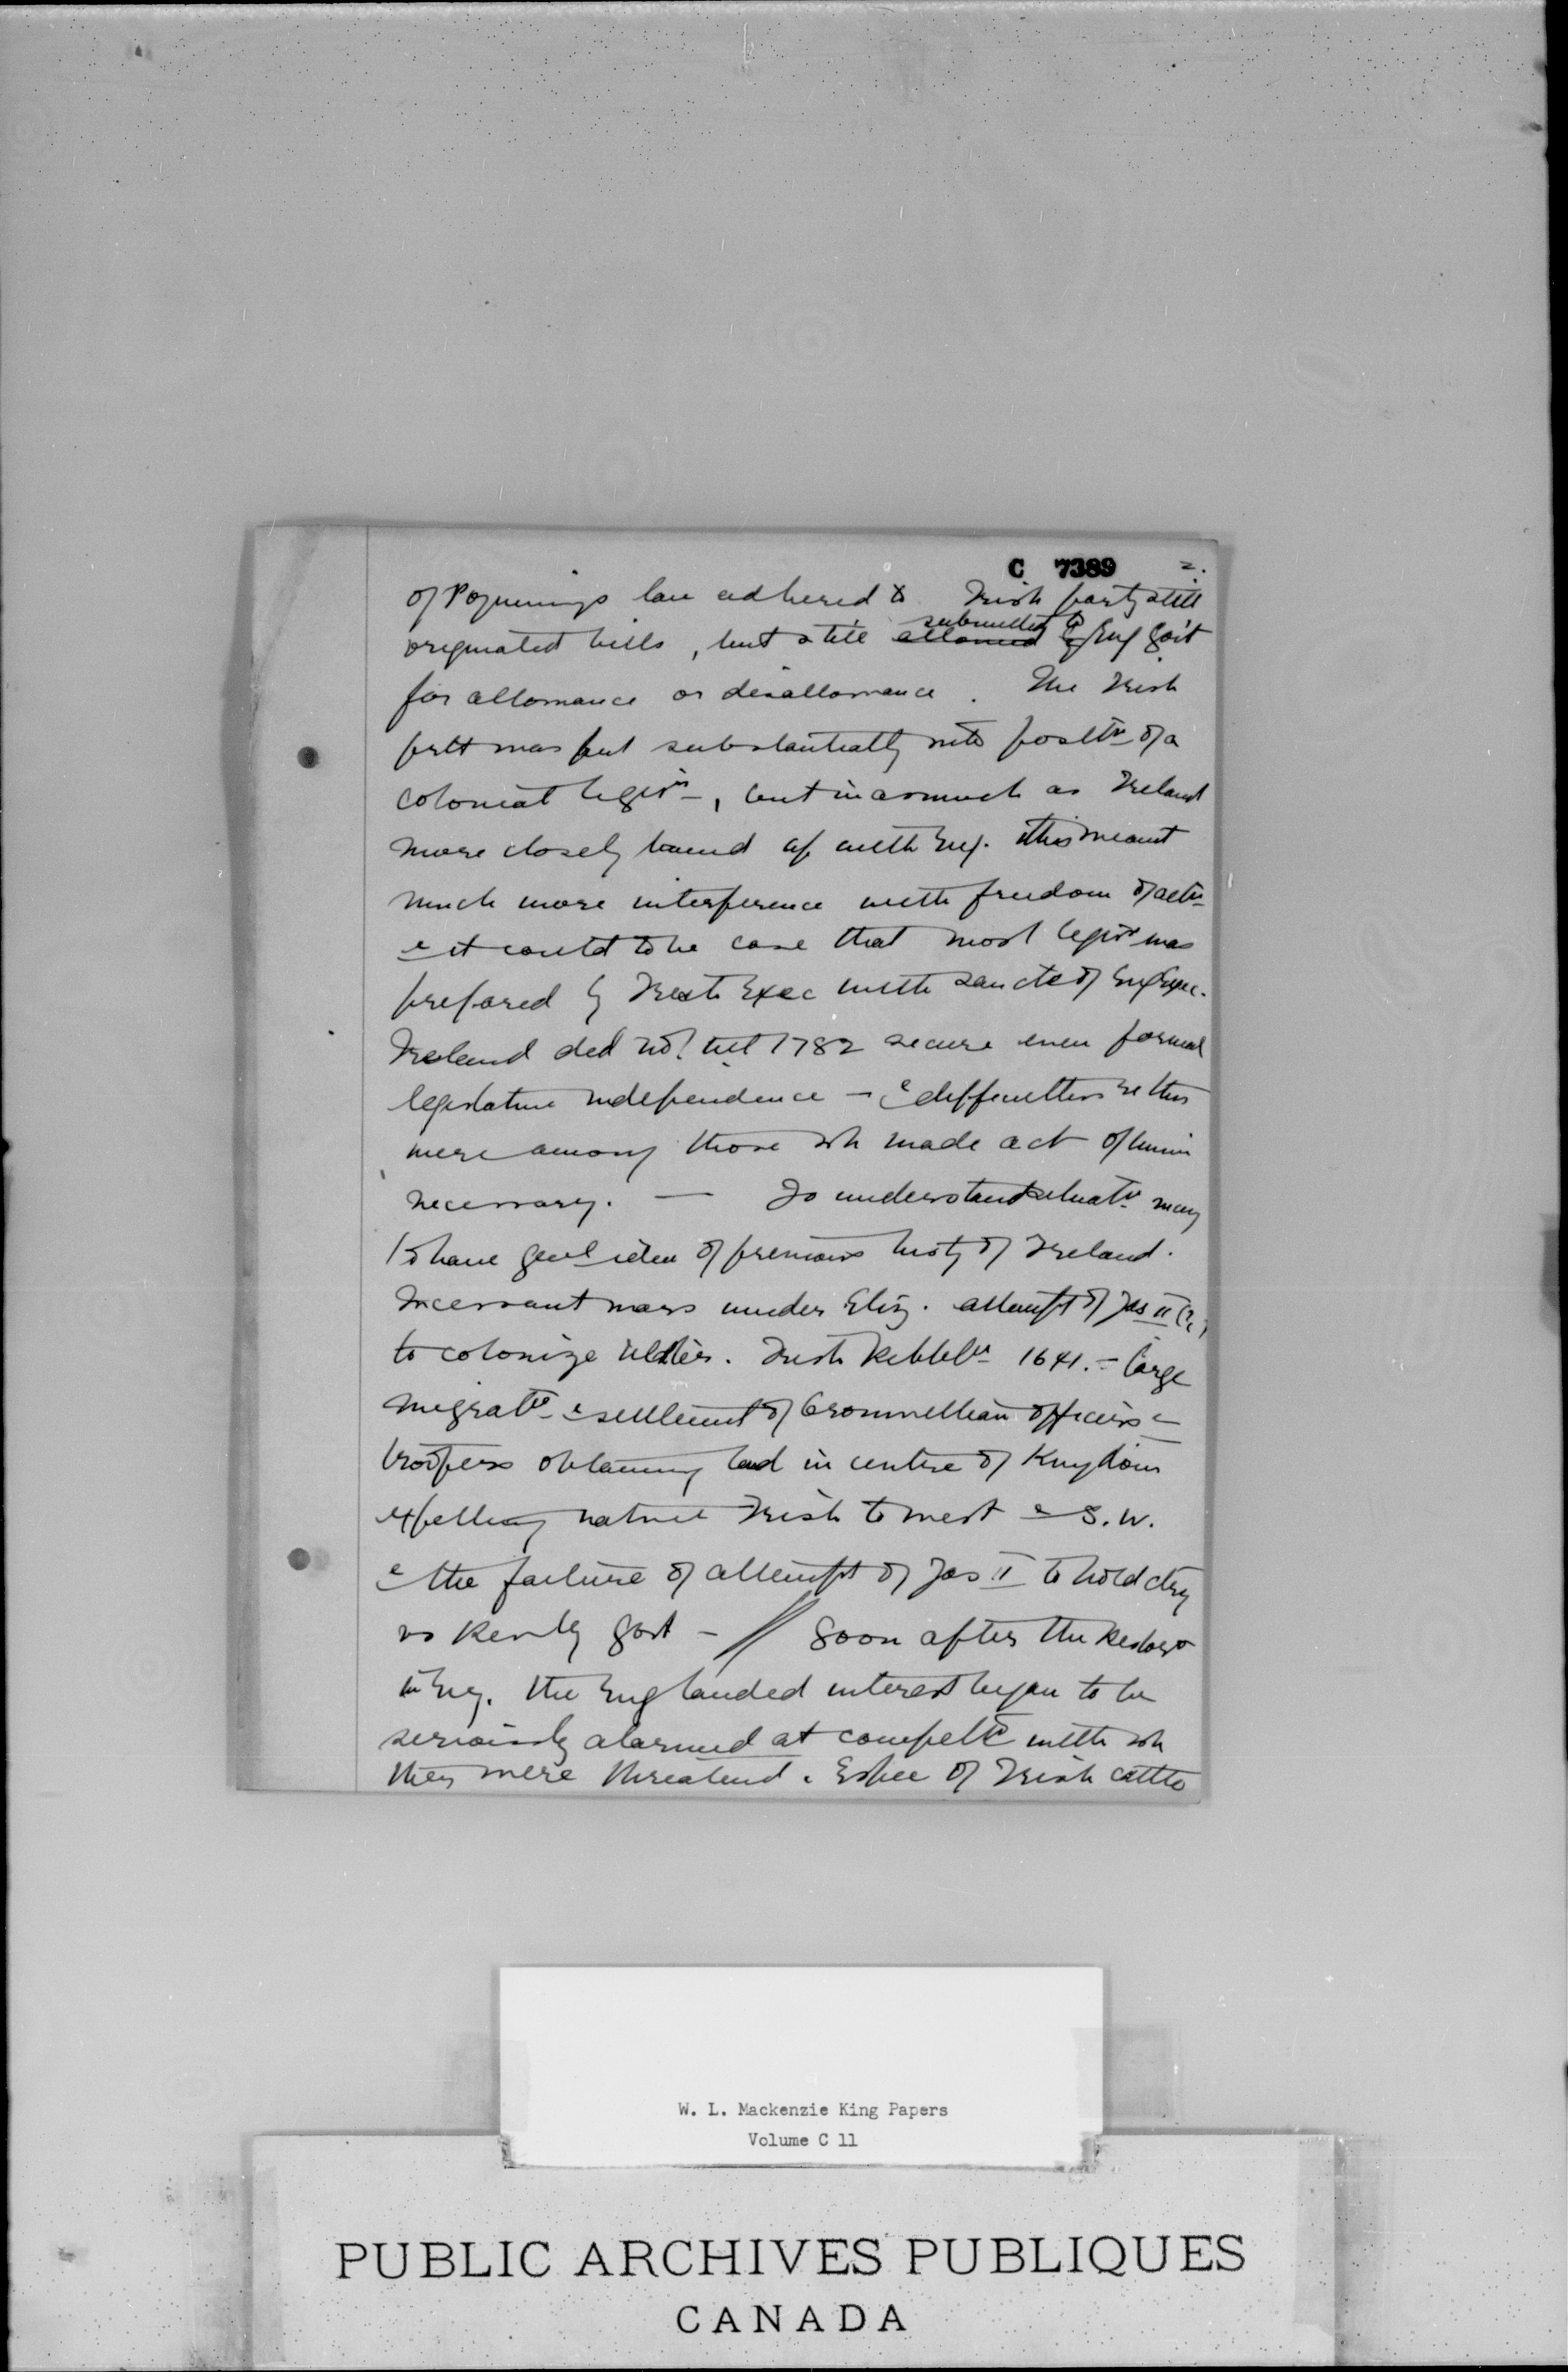 C 7389 2.
of Poynings law adhered to Irish party still
submitted to
originated bills, but still allowed by Eng Gov't
for allowance or disallowance. The Irish
was put substantially into positn of a
colonial legisn, but inasmuch as Ireland
more closely bound up with Eng. this meant
much more interference with freedom of actn
& it could to be case that most legisn was
prepared by Irish Exec with sanctn of Eng Exec.
Ireland did not till 1782 secure even formal
legislative independence - & difficulties re this
were among those wh made act of union
necessary. — To understand situatn necy
to have genl idea of previous histy of Ireland.
Incessant wars under Eliz. attempt of Jas II (?)
to colonize Ulster. Irish Rebelln 1641. - large
migratn & settlement of Cromwellian officers &
troopers obtaining land in centre of Kingdom
expelling native Irish to west & S.W.
& the failure of attempt of Jas II to hold cty
vs Revly govt - // Soon after the Restorn
in Eng. the Eng landed interest began to be
seriously alarmed at competn with wh
they were threatend. Espec of Irish cattle
W. L. Mackenzie King Papers
Volume C 11
PUBLIC ARCHIVES PUBLIQUES
CANADA